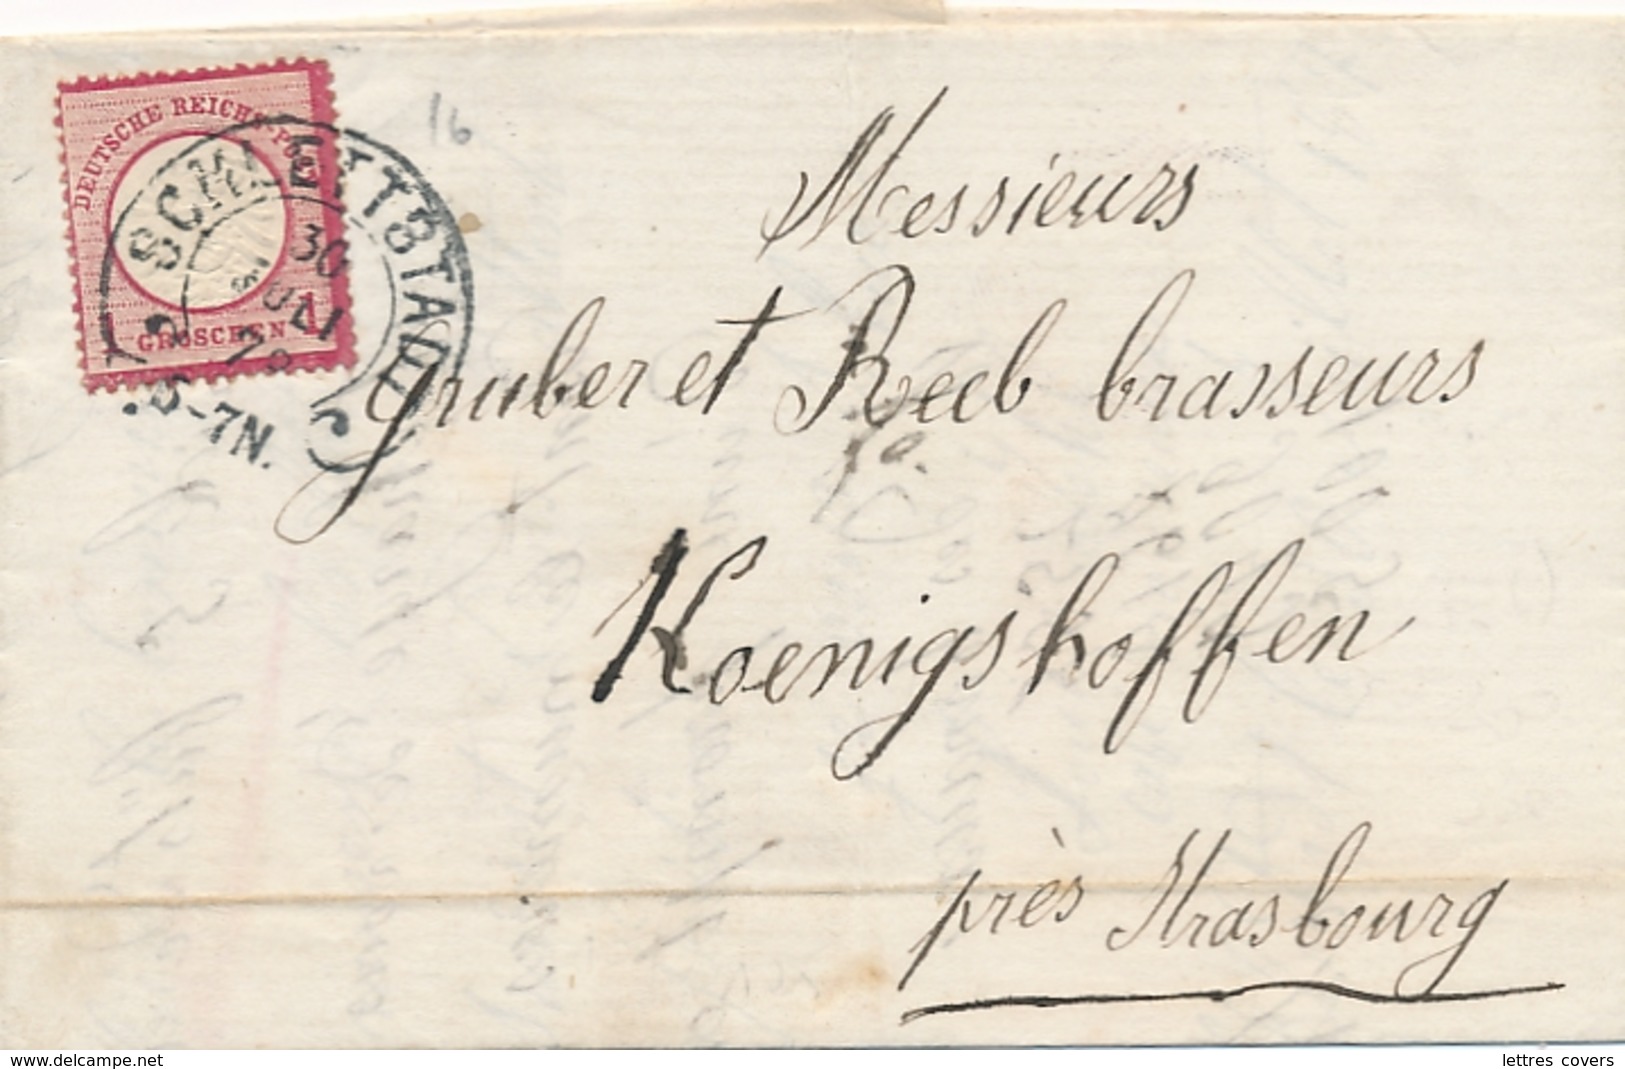 DEUTSCHE REICHS-POST
1 GROSCHEN 1
SCHLETTSTADT
30
JULI
6-7N.
16
Messieurs
Gruber et Reeb brasseurs
Koenigshoffen
près Strasbourg
www.delcampe.net
lettres covers